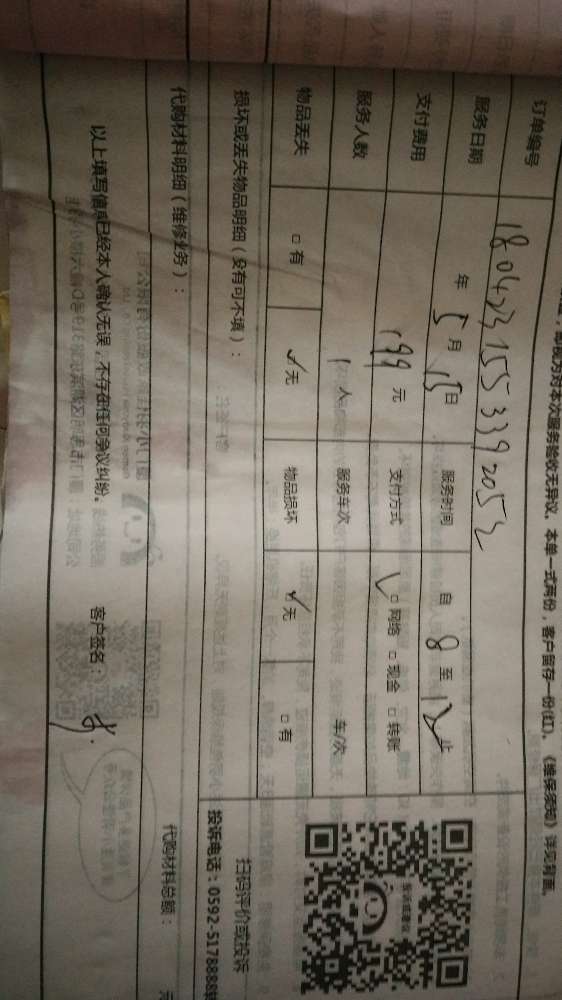 即视为对本次服务验收无异议。本单一式两份，客户留存一份(红)。《维保须知》详见背面。
订单编号 18043315533392052
服务日期 年 5月 15日 服务时间 自 8 至 12 止
支付费用 199 元 支付方式 ✓□网络 □现金 □转账
服务人数 1 人 服务车次 车/次
物品丢失 □有 ✓无 物品损坏 ✓无 □有
损坏或丢失物品明细（没有可不填）：
扫码评价或投诉
投诉电话：0592-5178888转
代购材料明细（维修业务）：
代购材料总额： 元
以上填写信息已经本人确认无误，不存在任何争议纠纷。 客户签名：